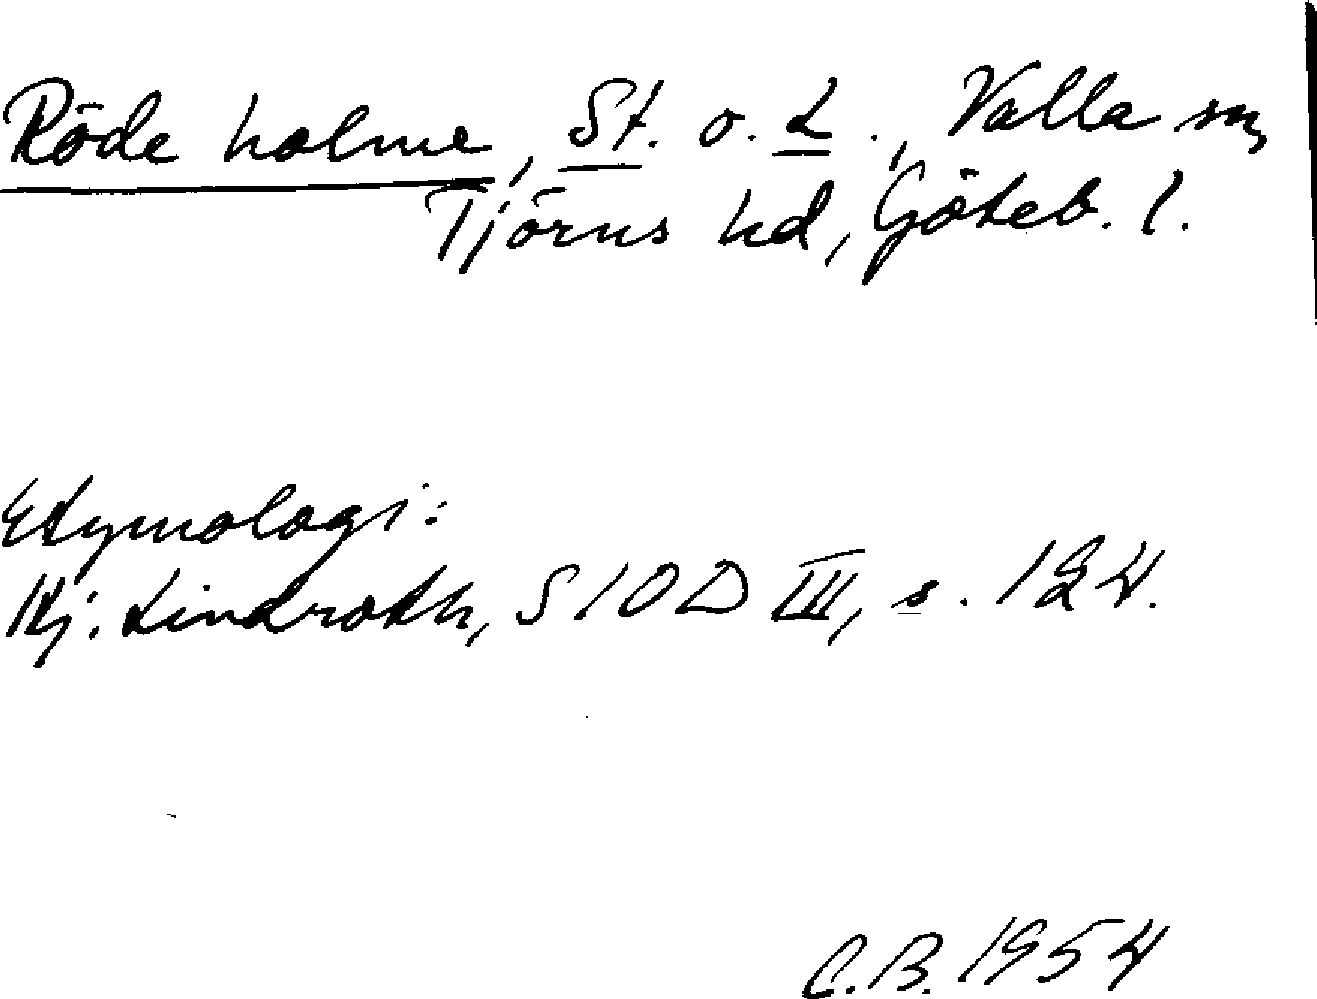 Röde holme, St. o. L., Valla sn,
Tjörns hd, Göteb. l.
Etymologi:
Hj. Lindroth, SIOD III, s. 124.
C.B. 1954